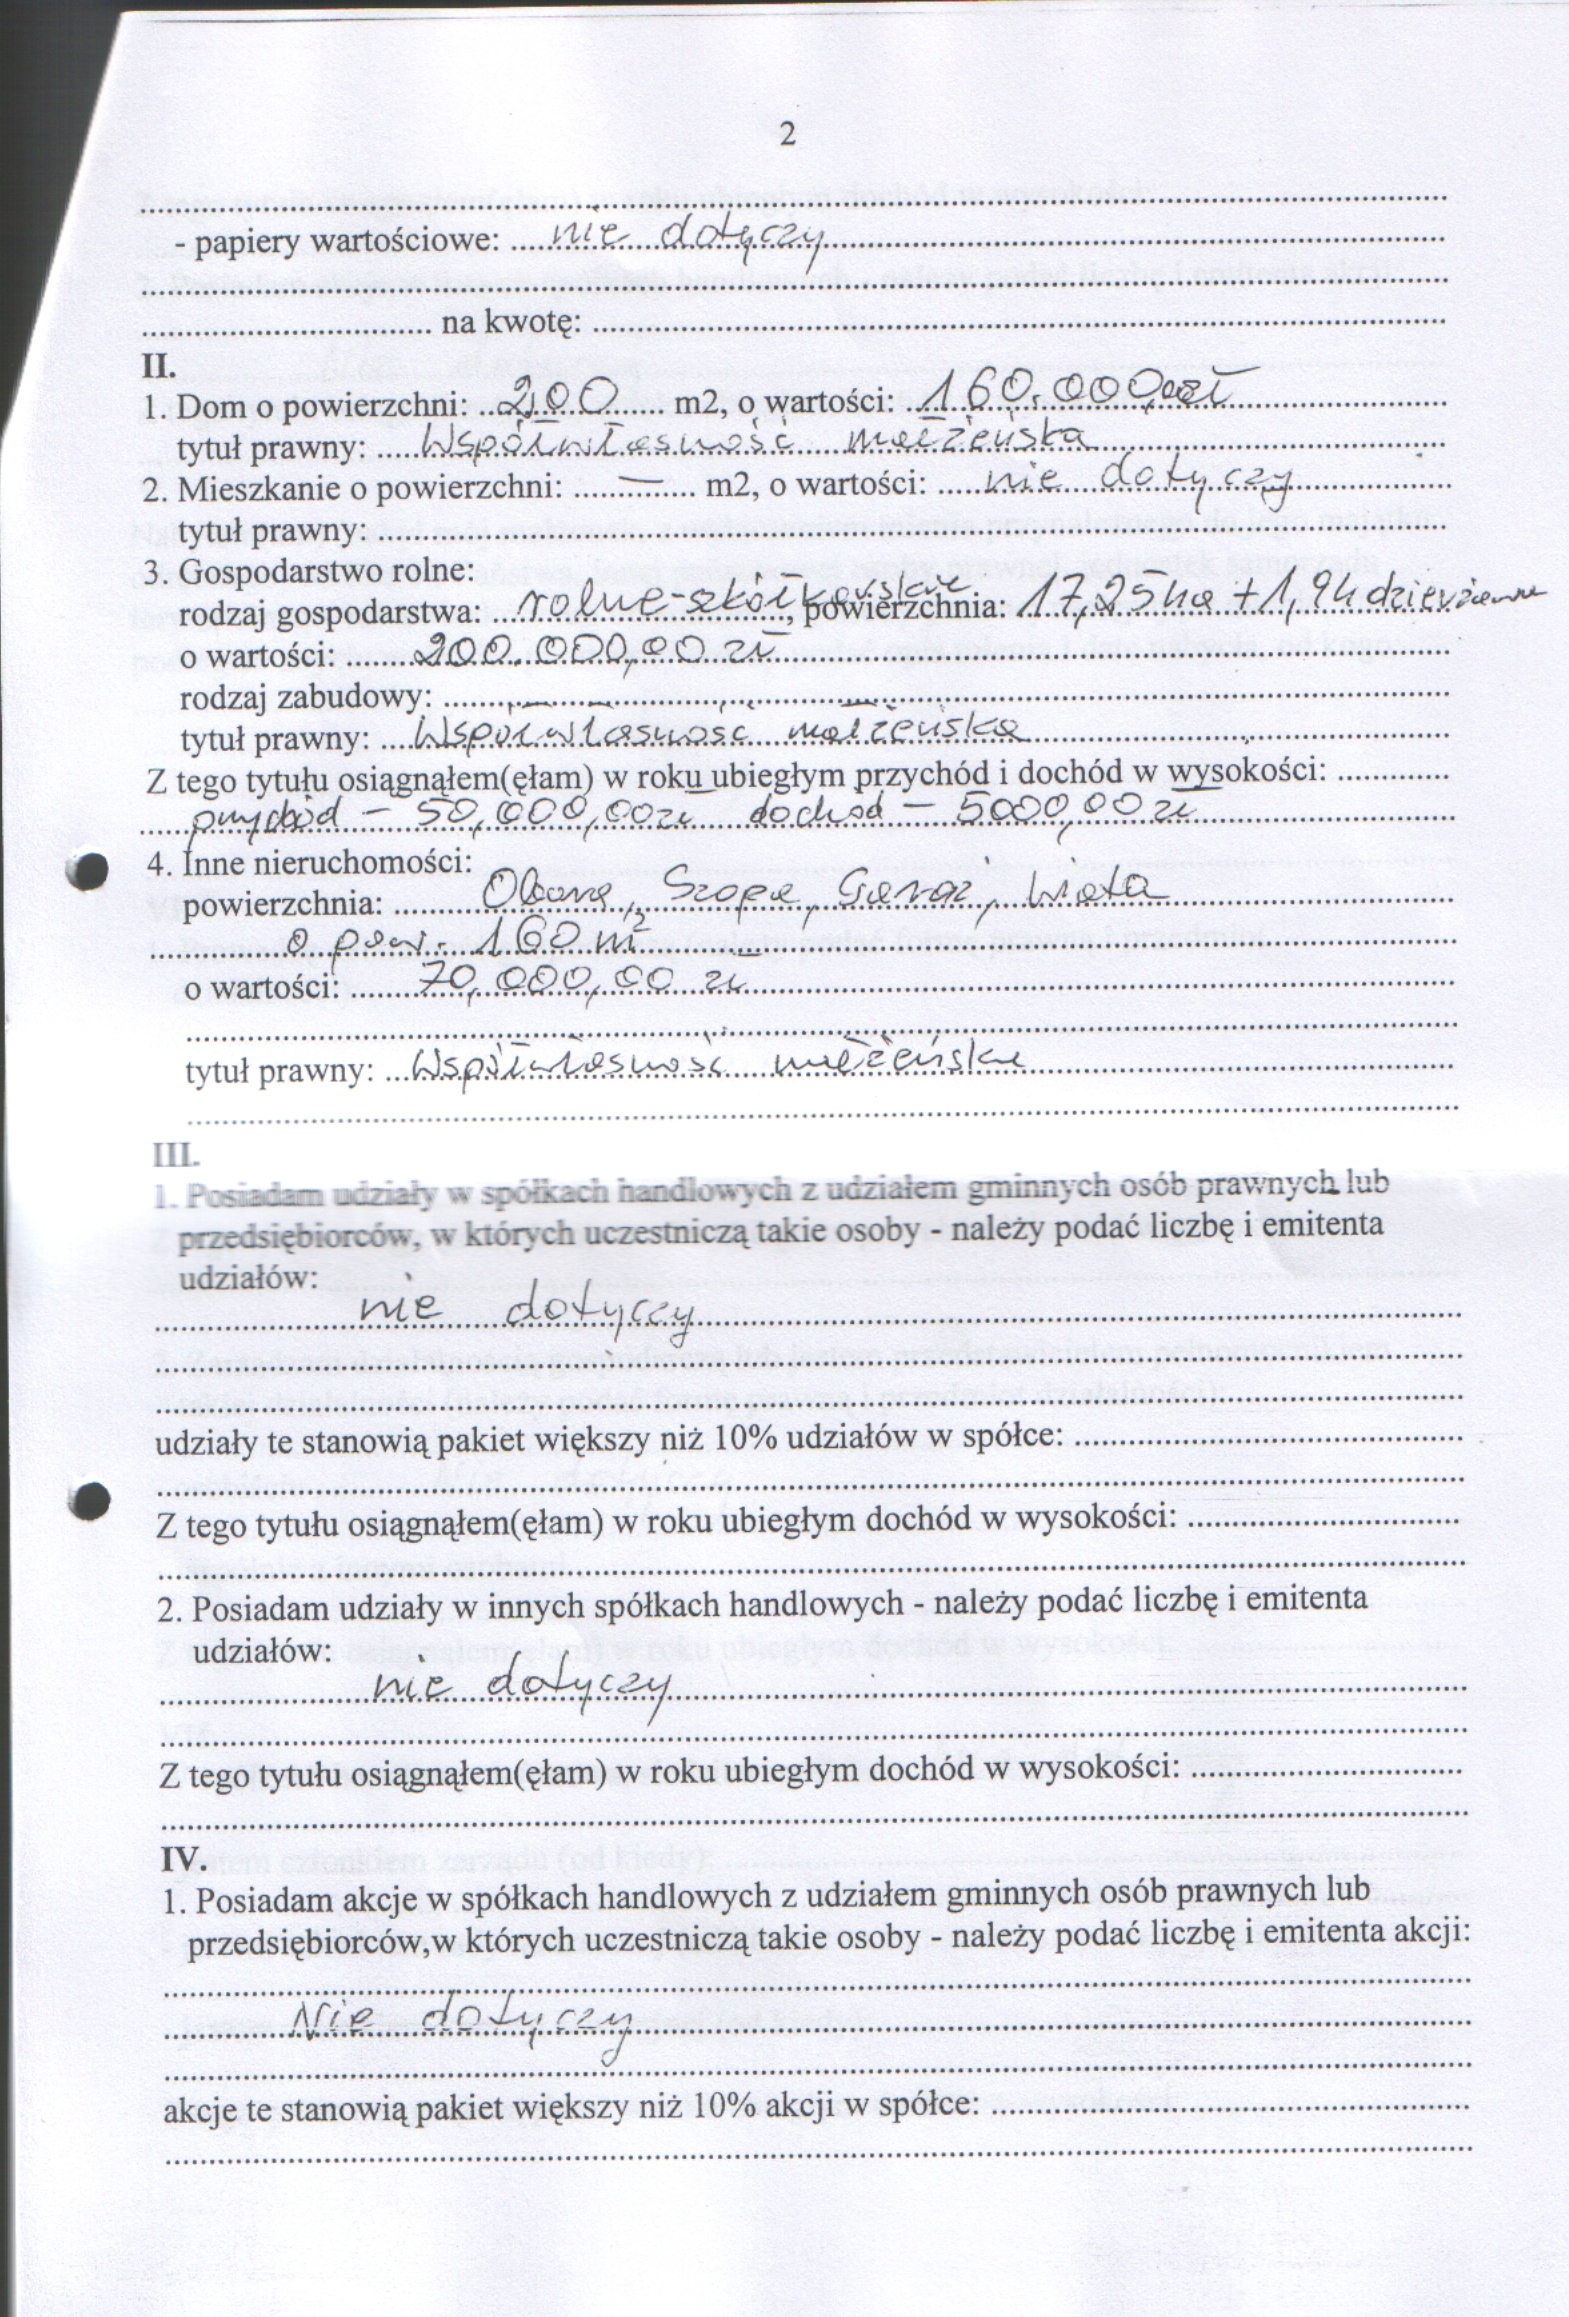 2
- papiery wartościowe: nie dotyczy
na kwotę:
II.
1. Dom o powierzchni: 200 m2, o wartości: 160.000,00zł
tytuł prawny: Współwłasność małżeńska
2. Mieszkanie o powierzchni: — m2, o wartości: nie dotyczy
tytuł prawny:
3. Gospodarstwo rolne:
rodzaj gospodarstwa: rolne-szkółkarskie, powierzchnia: 17,25ha + 1,94 dzierżawne
o wartości: 200.000,00 zł
rodzaj zabudowy:
tytuł prawny: Współwłasność małżeńska
Z tego tytułu osiągnąłem(ęłam) w roku ubiegłym przychód i dochód w wysokości:
przychód – 50,000,00zł dochód – 5000,00 zł
4. Inne nieruchomości:
powierzchnia: Obora, Szopa, Garaż, Wiata
o pow. 160 m²
o wartości: 70,000,00 zł
tytuł prawny: Współwłasność małżeńska
III.
1. Posiadam udziały w spółkach handlowych z udziałem gminnych osób prawnych lub
przedsiębiorców, w których uczestniczą takie osoby - należy podać liczbę i emitenta
udziałów:
nie dotyczy
udziały te stanowią pakiet większy niż 10% udziałów w spółce:
Z tego tytułu osiągnąłem(ęłam) w roku ubiegłym dochód w wysokości:
2. Posiadam udziały w innych spółkach handlowych - należy podać liczbę i emitenta
udziałów:
nie dotyczy
Z tego tytułu osiągnąłem(ęłam) w roku ubiegłym dochód w wysokości:
IV.
1. Posiadam akcje w spółkach handlowych z udziałem gminnych osób prawnych lub
przedsiębiorców,w których uczestniczą takie osoby - należy podać liczbę i emitenta akcji:
Nie dotyczy
akcje te stanowią pakiet większy niż 10% akcji w spółce: